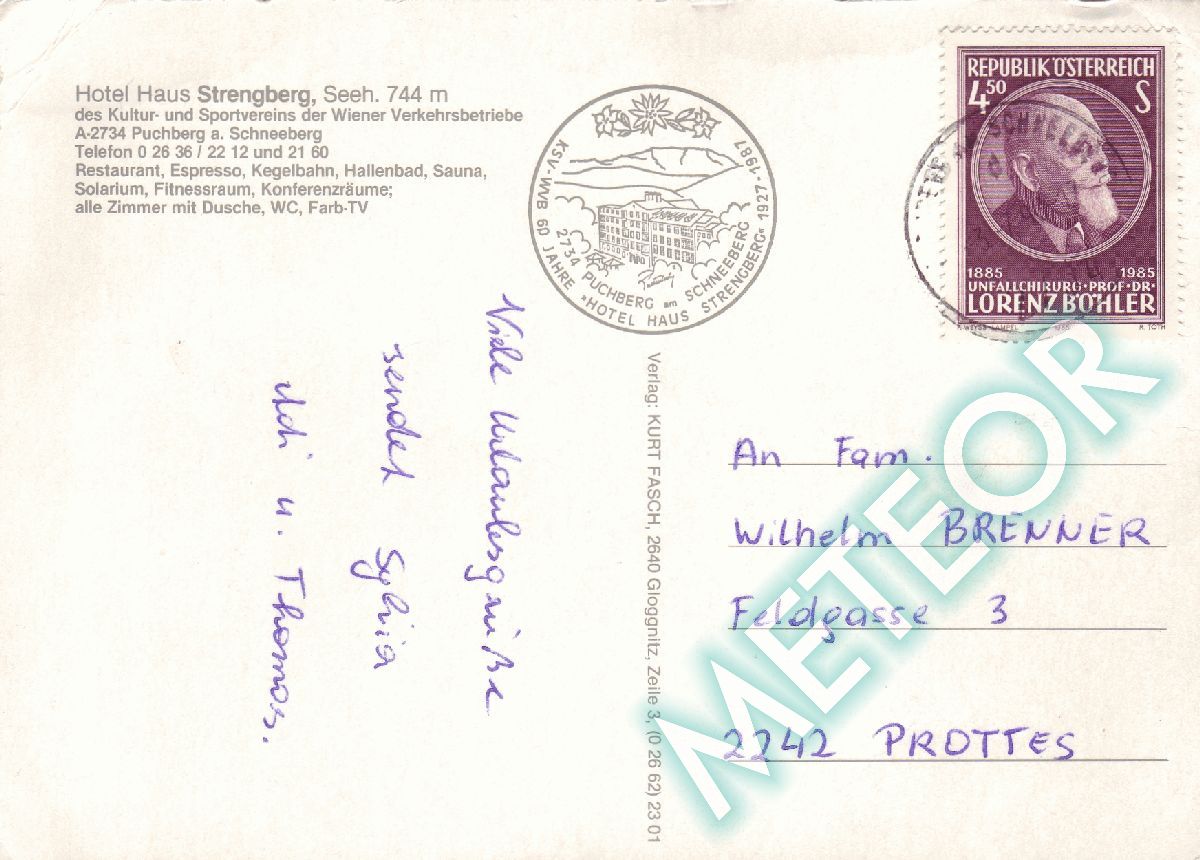 Hotel Haus Strengberg, Seeh. 744 m
des Kultur- und Sportvereins der Wiener Verkehrsbetriebe
A-2734 Puchberg a. Schneeberg
Telefon 0 26 36 / 22 12 und 21 60
Restaurant, Espresso, Kegelbahn, Hallenbad, Sauna,
Solarium, Fitnessraum, Konferenzräume;
alle Zimmer mit Dusche, WC, Farb-TV
KSV-WVB 60 JAHRE "HOTEL HAUS STRENGBERG" 1927-1987
2734 PUCHBERG am SCHNEEBERG
REPUBLIK ÖSTERREICH
450 S
1885 1985
UNFALLCHIRURG·PROF·DR·
LORENZ BÖHLER
1985 R. TOTH
SCHNEEBERG
Viele Urlaubsgrüße
sendet Sylvia
u. Thomas.
Verlag: KURT FASCH, 2640 Gloggnitz, Zeile 3, (0 26 62) 23 01
An Fam.
Wilhelm BRENNER
Feldgasse 3
2242 PROTTES
METEOR